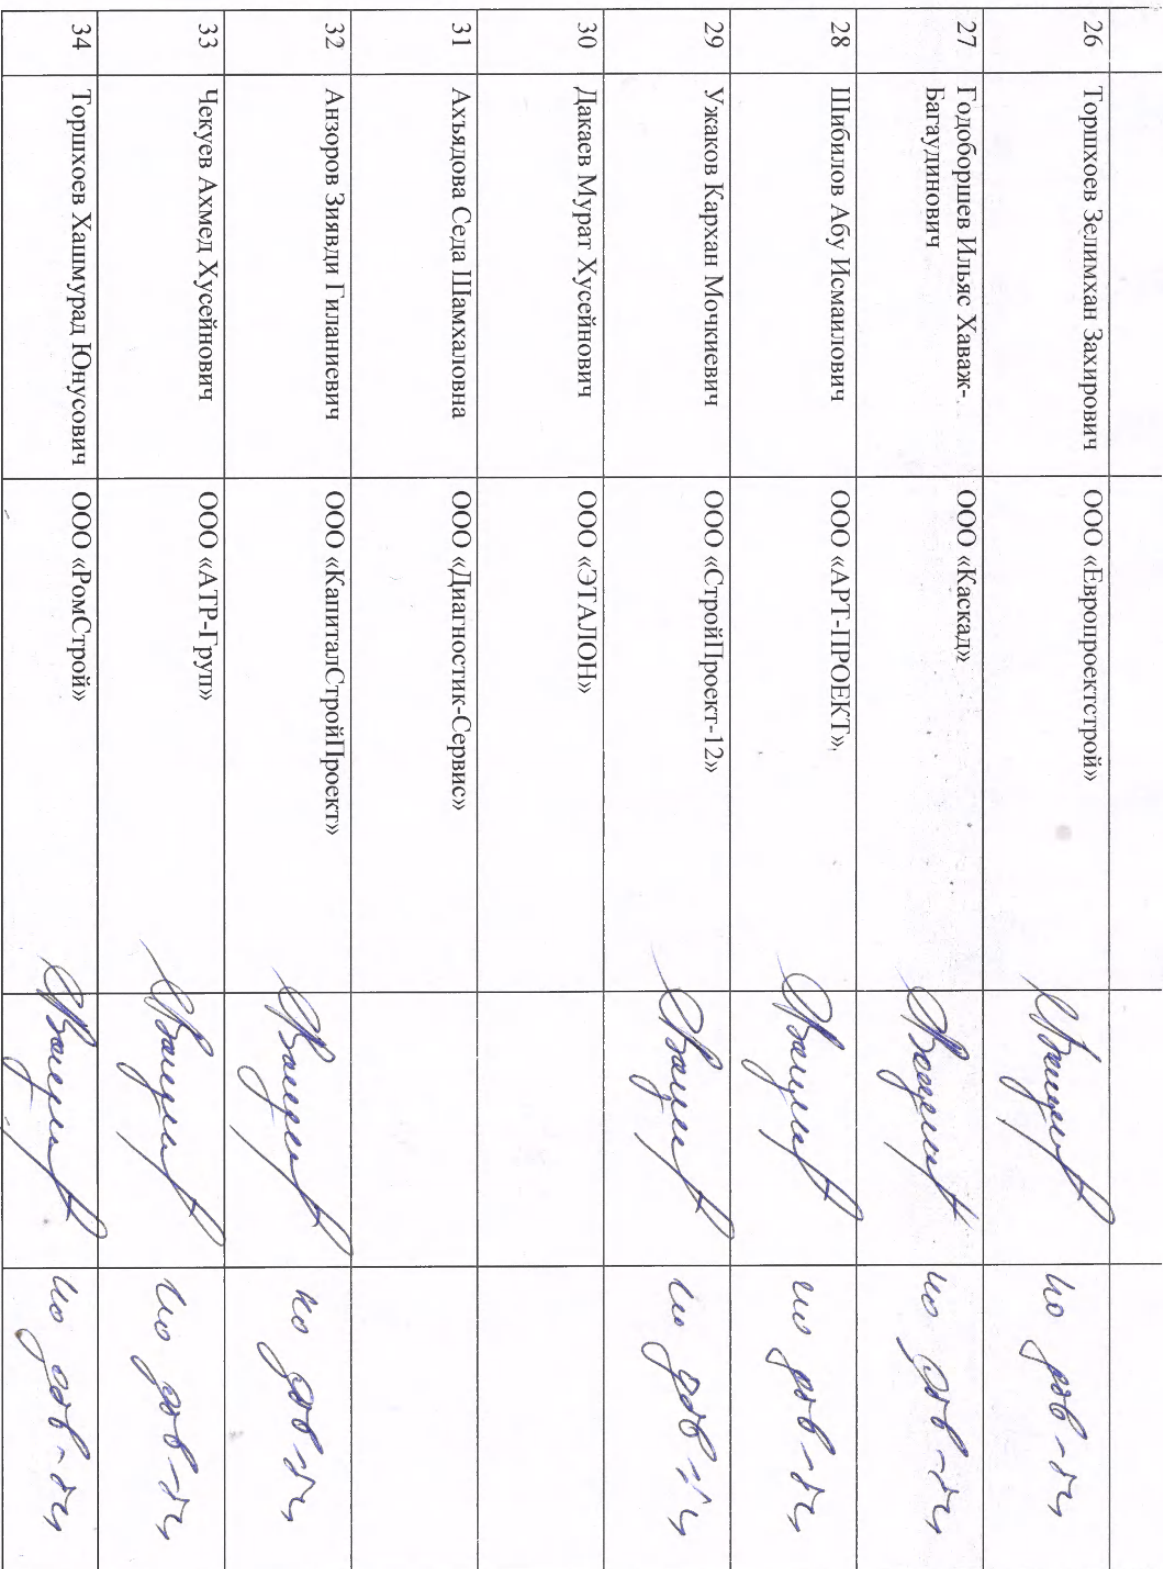 26 Торшхоев Зелимхан Захирович ООО «Европроектстрой» по дов-ти
27 Годоборшев Ильяс Хаваж- ООО «Каскад» по дов-ти
Багаудинович
28 Шибилов Абу Исмаилович ООО «АРТ-ПРОЕКТ», по дов-ти
29 Ужаков Кархан Мочкиевич ООО «СтройПроект-12» по дов-ти
30 Дакаев Мурат Хусейнович ООО «ЭТАЛОН»
31 Ахъядова Седа Шамхаловна ООО «Диагностик-Сервис»
32 Анзоров Зиявди Гиланиевич ООО «КапиталСтройПроект» по дов-ти
33 Чекуев Ахмед Хусейнович ООО «АТР-Груп» по дов-ти
34 Торшхоев Хашмурад Юнусович ООО «РомСтрой» по дов-ти